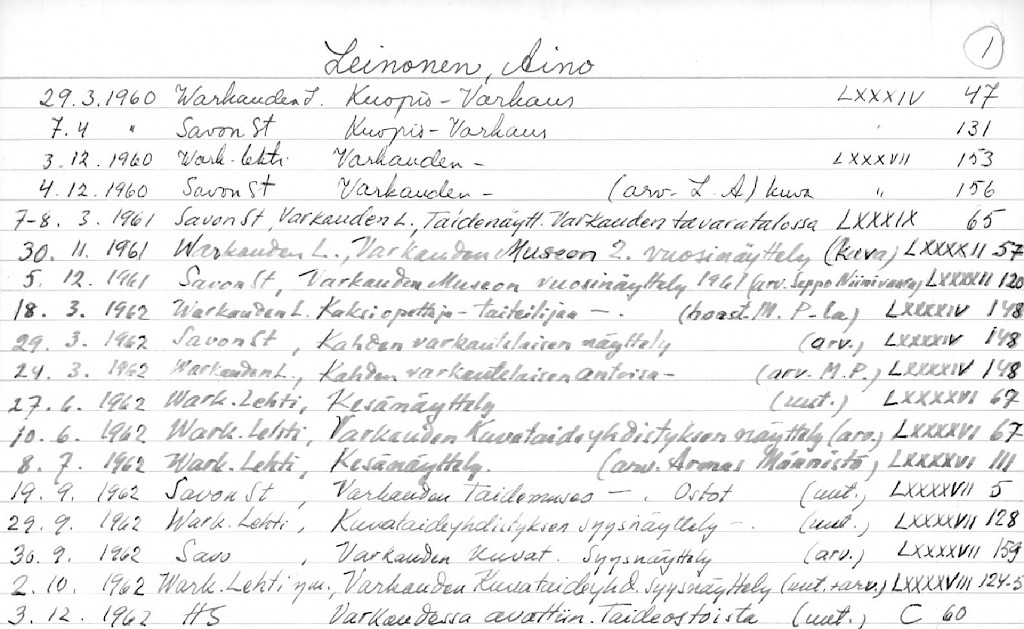 1
Leinonen, Aino
29.3.1960 Warkauden L. Kuopio - Varkaus LXXXIV 47
7.4 " Savon St Kuopio - Varkaus " 131
3.12.1960 Wark. lehti Varkauden - LXXXVII 153
4.12.1960 Savon St Varkauden - (arv. L. A) kuva " 156
7-8. 3. 1961 Savon St, Varkauden L., Taidenäytt. Varkauden tavaratalossa LXXXIX 65
30. 11. 1961 Warkauden L., Varkauden Museon 2. vuosinäyttely (kuva) LXXXXII 57
5. 12. 1961 Savon St, Varkauden Museon vuosinäyttely 1961 (arv. Seppo Niinivaara) LXXXXII 120
18. 3. 1962 Warkauden L. Kaksi opettaja - taiteilijaa - . (haast. M. P-la) LXXXXIV 148
29. 3. 1962 Savon St, Kahden varkautelaisen näyttely (arv.) LXXXXIV 148
24. 3. 1962 Warkauden L., Kahden varkautelaisen antoisa - (arv. M.P.) LXXXXIV 148
27. 6. 1962 Wark. Lehti, Kesänäyttely (uut.) LXXXXVI 67
10. 6. 1962 Wark. Lehti, Varkauden Kuvataideyhdistyksen näyttely (arv.) LXXXXVI 67
8. 7. 1962 Wark. Lehti, Kesänäyttely. (arv. Armas Männistö) LXXXXVI 111
19. 9. 1962 Savon St, Varkauden Taidemuseo - . Ostot (uut.) LXXXXVII 5
29. 9. 1962 Wark. Lehti, Kuvataideyhdistyksen syysnäyttely - . (uut.) LXXXXVII 128
30. 9. 1962 Savo, Varkauden Kuvat. Syysnäyttely (arv.) LXXXXVII 159
2. 10. 1962 Wark. Lehti ym., Varkauden Kuvataideyhd. Syysnäyttely (uut. + arv.) LXXXXVIII 124-5
3. 12. 1962 HS Varkaudessa avattiin. Taideostoista (uut.) C 60